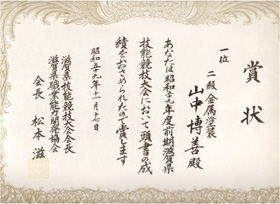 賞状
一位
二級金属塗装
山中博善殿
あなたは昭和五十九年度前期滋賀県
技能競技大会において頭書の成
績をおさめられたので賞します
昭和五十九年十一月十七日
滋賀県技能競技大会会長
滋賀県職業能力開発協会
会長 松本滋